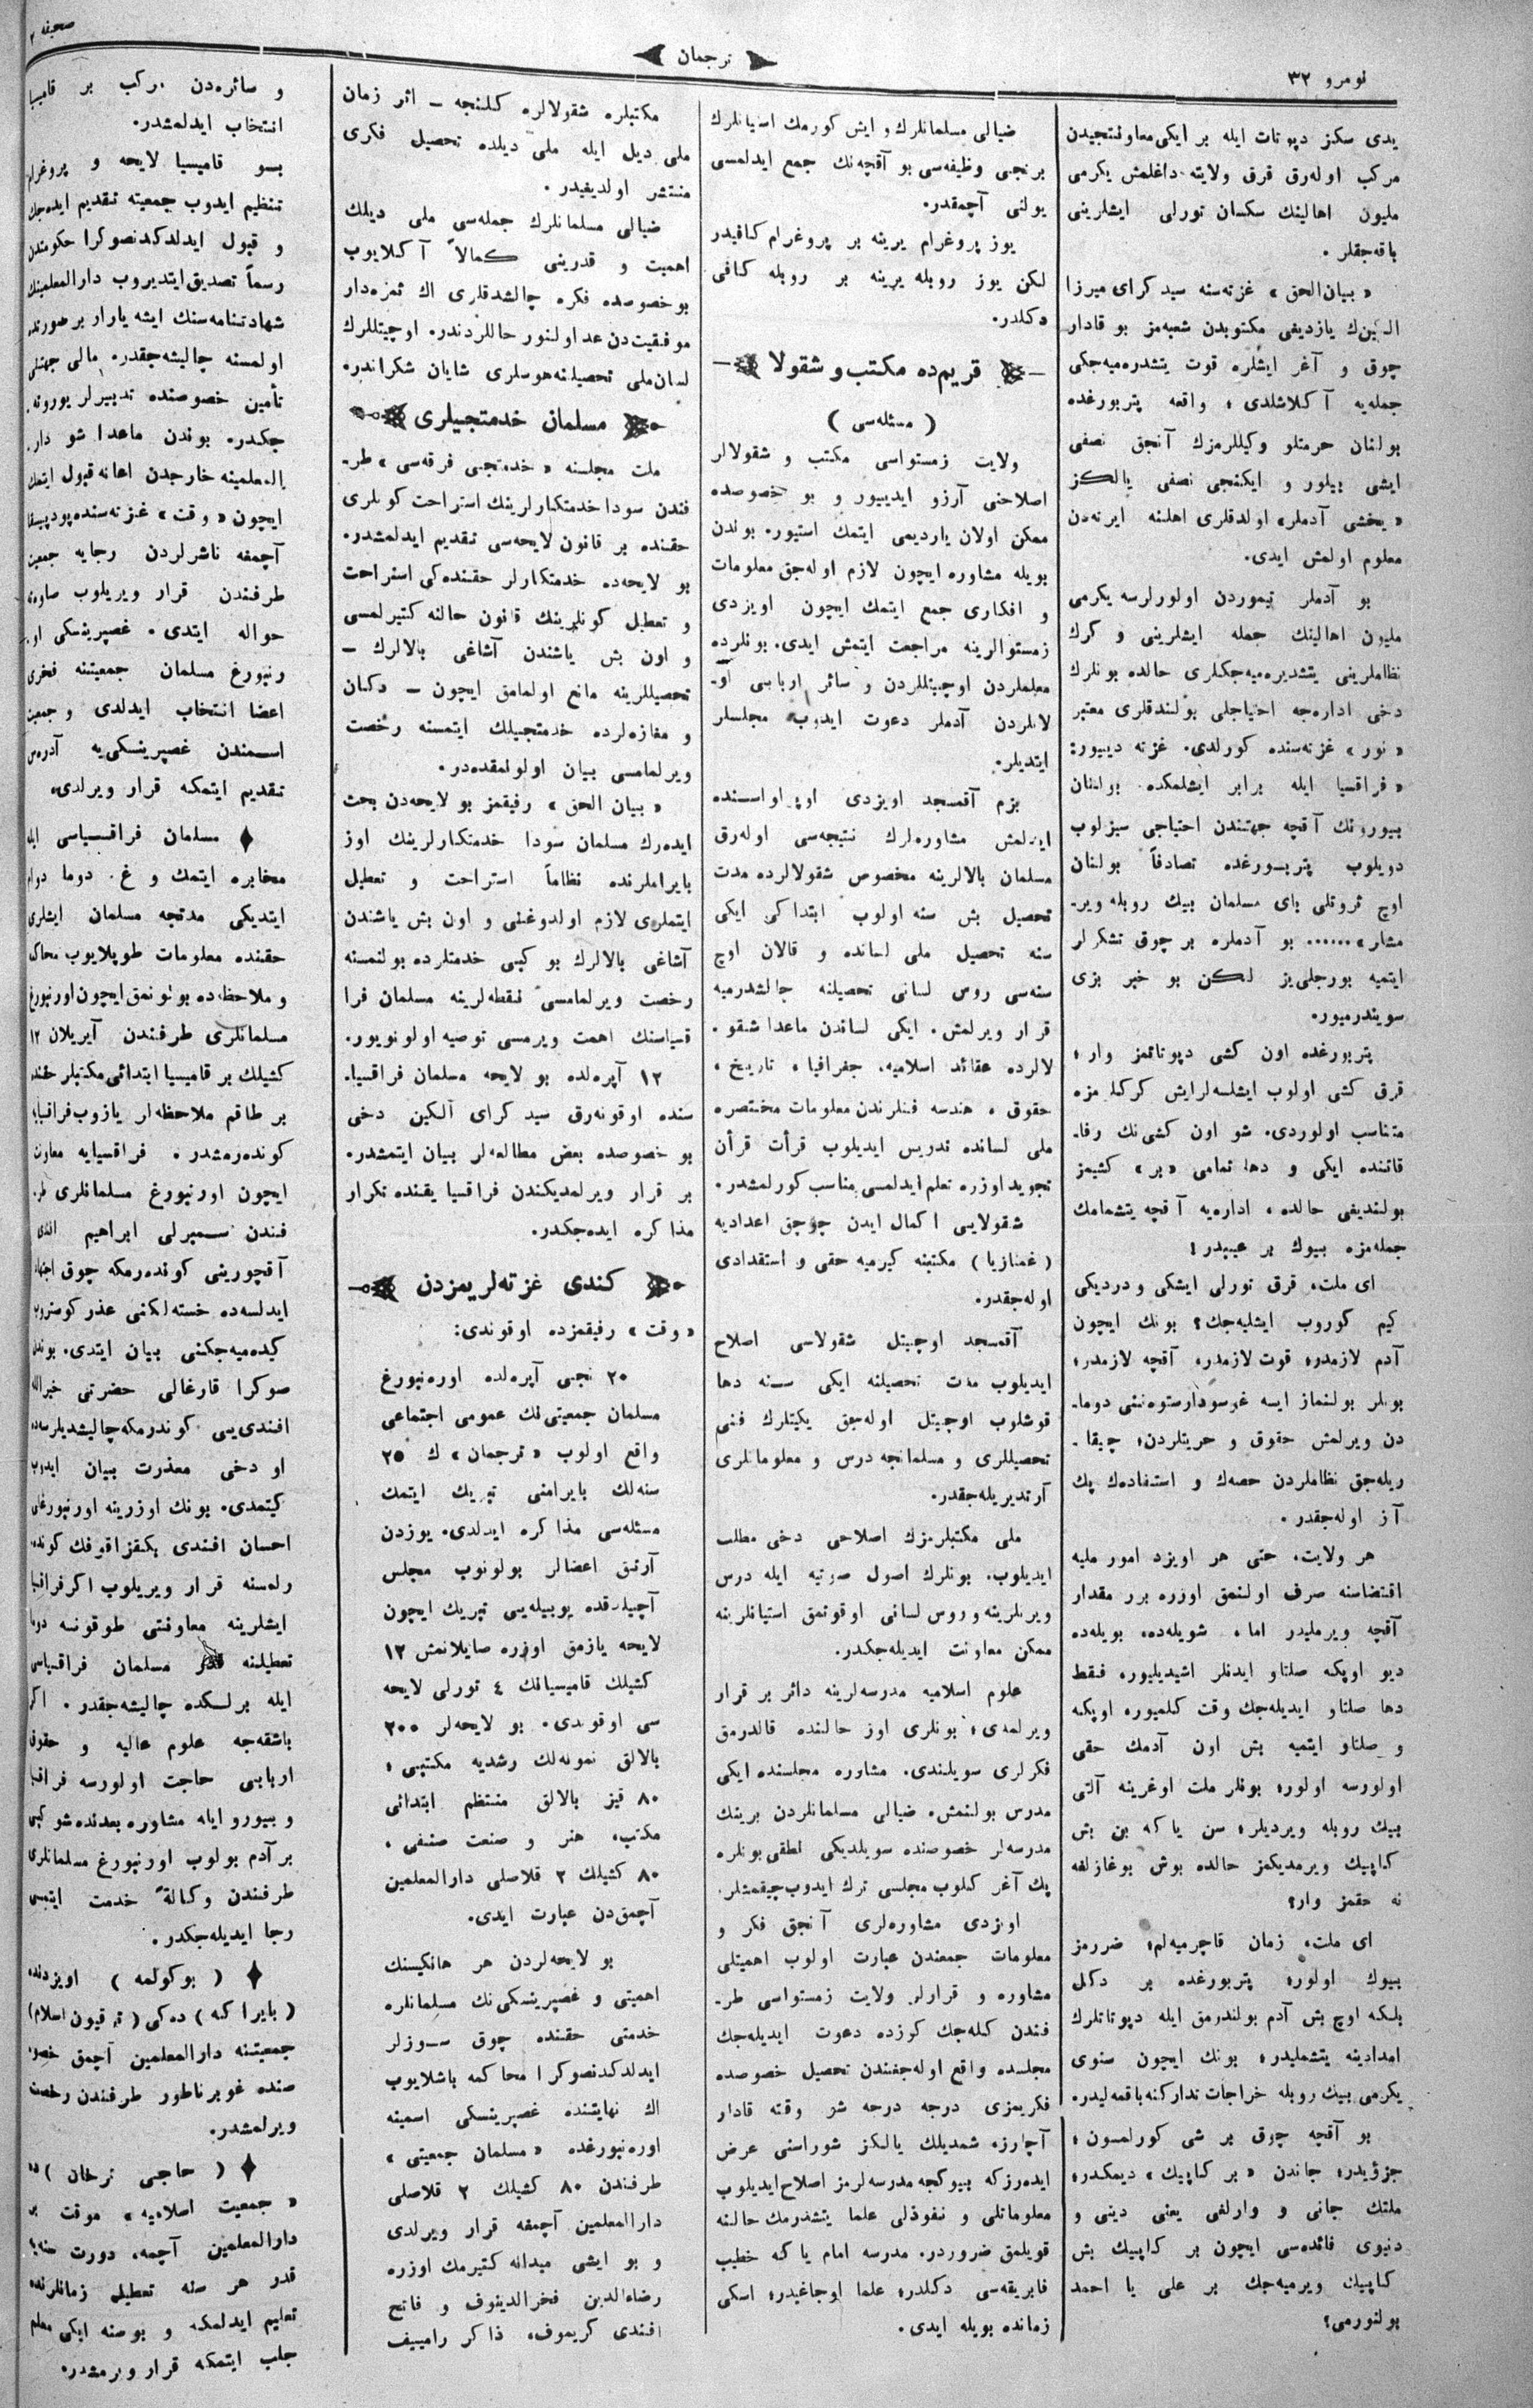 نومرو ۳۲
ترجمان
صحیفه ۲
یدی سکز دپوتات ایله بر ایکی معاونتجیدن
مرکب اوله‌رق قرق ولایته داغلمش یکرمی
ملیون اهالینك سکسان تورلی ایشلرینی
باقه‌جقلر.
«بیان‌الحق» غزته‌سنه سید کرای میرزا
الکین‌ك یازدیغی مکتوبدن شعبه‌مز بو قادار
چوق و آغر ایشلره قوت یتشدره‌میه‌جکی
جمله‌یه آکلاشلدی؛ واقعه پتربورغده
بولنان حرمتلو وکیللرمزك آنجق نصفی
ایشی بیلور و ایکنجی نصفی یالکز
«یخشی آدملر» اولدقلری اهلنه ایرته‌دن
معلوم اولمش ایدی.
بو آدملر تیموردن اولورلرسه یکرمی
ملیون اهالینك جمله ایشلرینی و کرك
نظاملرینی یتشدیره‌میه‌جکلری حالده بونلرك
دخی اداره‌جه احتیاجلی بولندقلری معتبر
«نور» غزته‌سنده کورلدی. غزته دیییور:
«فراقسیا ایله برابر ایشلمکده بولنان
بیورونك آقچه جهتندن احتیاجی سیزلوب
دویلوب پتربورغده تصادفاً بولنان
اوچ ثروتلی بای مسلمان بیك روبله ویر-
مشلر»...... بو آدملره بر چوق تشکرلر
ایتمیه بورجلی‌یز لکن بو خبر بزی
سویندرمیور.
پتربورغده اون کشی دپوتاتمز وار؛
قرق کشی اولوب ایشلسه‌لر ایش کرکلمزه
متناسب اولوردی. شو اون کشی‌نك رفا-
قاتنده ایکی و دها تمامی «بر» کشیمز
بولندیغی حالده، اداره‌یه آقچه یتشمامك
جمله‌مزه بیوك بر عیبدر؛
ای ملت، قرق تورلی ایشکی و دردیکی
کیم کوروب ایشلیه‌جك؟ بونك ایچون
آدم لازمدر؛ قوت لازمدر، آقچه لازمدر؛
بونلر بولنماز ایسه غوسودارستوه‌ننی دوما-
دن ویرلمش حقوق و حریتلردن؛ چیقا-
ریله‌جق نظاملردن حصه‌ك و استفاده‌ك پك
آز اوله‌جقدر.
هر ولایت، حتی هر اویزد امور ملیه
اقتضاسنه صرف اولنمق اوزره برر مقدار
آقچه ویرملیدر اما، شویله‌ده، بویله‌ده
دیو اوپکه صلتاو ایدنلر اشیدیلیور، فقط
دها صلتاو ایدیله‌جك وقت کلمیور، اوپکه
و صلتاو ایتمیه بش اون آدمك حقی
اولورسه اولور؛ بونلر ملت اوغرینه آلتی
بیك روبله ویردیلر؛ سن یا که بن بش
کاپیك ویرمدیکمز حالده بوش بوغازلغه
نه حقمز وار؟
ای ملت، زمان قاچرمیه‌لم؛ ضررمز
بیوك اولور؛ پتربورغده بر دکل
بلکه اوچ بش آدم بولندرمق ایله دپوتاتلرك
امدادینه یتشملیدر؛ بونك ایچون سنوی
یکرمی بیك روبله خراجات تدارکنه باقمه‌لیدر.
بو آقچه چوق بر شی کورلمسون؛
جزؤیدر؛ جاندن «بر کاپیك» دیمکدر؛
ملتك جانی و وارلغی یعنی دینی و
دنیوی فائده‌سی ایچون بر کاپیك بش
کاپیك ویرمیه‌جك بر علی یا احمد
بولنورمی؟
ضیالی مسلمانلرك و ایش کورمك استیانلرك
برنجی وظیفه‌سی بو آقچه‌نك جمع ایدلمسی
یولنی آچمقدر.
یوز پروغرام یرینه بر پروغرام کافیدر
لکن یوز روبله یرینه بر روبله کافی
دکلدر.
قریم‌ده مکتب و شقولا
(مسئله‌سی)
ولایت زمستواسی مکتب و شقولالر
اصلاحنی آرزو ایدیییور و بو خصوصده
ممکن اولان یاردیمی ایتمك استیور. بوندن
بویله مشاوره ایچون لازم اوله‌جق معلومات
و افکاری جمع ایتمك ایچون اویزدی
زمستوالرینه مراجعت ایتمش ایدی. بونلرده
معلملردن اوچیتللردن و سائر اربابی او-
لانلردن آدملر دعوت ایدوب مجلسلر
ایتدیلر.
بزم آقمسجد اویزدی اوپراواسنده
ایدلمش مشاوره‌لرك نتیجه‌سی اوله‌رق
مسلمان بالالرینه مخصوص شقولالرده مدت
تحصیل بش سنه اولوب ابتداکی ایکی
سنه تحصیل ملی لسانده و قالان اوچ
سنه‌سی روس لسانی تحصیلنه چالشدرمیه
قرار ویرلمش. ایکی لساندن ماعدا شقو-
لالرده عقائد اسلامیه، جغرافیا، تاریخ،
حقوق، هندسه فنلرندن معلومات مختصره
ملی لسانده تدریس ایدیلوب قرأت قرأن
تجوید اوزره تعلم ایدلمسی مناسب کورلمشدر.
شقولایی اکمال ایدن چوجق اعدادیه
(غمنازیا) مکتبنه کیرمیه حقی و استقدادی
اوله‌جقدر.
آقمسجد اوچیتل شقولاسی اصلاح
ایدیلوب مدت تحصیلنه ایکی سنه دها
قوشلوب اوچیتل اوله‌جق یکیتلرك فنی
تحصیللری و مسلمانجه درس و معلوماتلری
آرتدیریله‌جقدر.
ملی مکتبلرمزك اصلاحی دخی مطلب
ایدیلوب، بونلرك اصول صوتیه ایله درس
ویرلرینه و روس لسانی اوقوتمق استیانلرینه
ممکن معاونت ایدیله‌جکدر.
علوم اسلامیه مدرسه‌لرینه دائر بر قرار
ویرلمدی؛ بونلری اوز حالنده قالدرمق
فکرلری سویلندی. مشاوره مجلسنده ایکی
مدرس بولنمش، ضیالی مسلمانلردن برینك
مدرسه‌لر خصوصنده سویلدیکی لطقی بونلره
پك آغر کلوب مجلسی ترك ایدوب چیقمشلر.
اویزدی مشاوره‌لری آنجق فکر و
معلومات جمعندن عبارت اولوب اهمیتلی
مشاوره و قرارلر ولایت زمستواسی طر-
فندن کله‌جك کوزده دعوت ایدیله‌جك
مجلسده واقع اوله‌جغندن تحصیل خصوصده
فکریمزی درجه درجه شو وقته قادار
آچارز، شمدیلك یالکز شوراسنی عرض
ایده‌رزکه بیوکجه مدرسه‌لرمز اصلاح ایدیلوب
معلوماتلی و نفوذلی علما یتشدرمك حالنه
قویلمق ضروردر. مدرسه امام یا که خطیب
فابریقه‌سی دکلدر؛ علما اوجاغیدر؛ اسکی
زمانده بویله ایدی.
مکتبلره شقولالره کلنجه – اثر زمان
ملی دیل ایله ملی دیلده تحصیل فکری
منتشر اولدیغیدر.
ضیالی مسلمانلرك جمله‌سی ملی دیلك
اهمیت و قدرینی کمالاً آکلایوب
بو خصوصده فکره چالشدقلری اك ثمره‌دار
موفقیت‌دن عد اولنور حاللردندر. اوچیتللرك
لسان ملی تحصیلنه هوسلری شایان شکراندر.
مسلمان خدمتجیلری
ملت مجلسنه «خدمتجی فرقه‌سی» طر-
فندن سودا خدمتکارلرینك استراحت کونلری
حقنده بر قانون لایحه‌سی تقدیم ایدلمشدر.
بو لایحه‌ده خدمتکارلر حقنده‌کی استراحت
و تعطیل کونلرینك قانون حالنه کتیرلمسی
و اون بش یاشندن آشاغی بالالرك –
تحصیللرینه مانع اولمامق ایچون – دکان
و مغازه‌لرده خدمتجیلك ایتمسنه رخصت
ویرلمامسی بیان اولولمقده‌در.
«بیان الحق» رفیقمز بو لایحه‌دن بحث
ایده‌رك مسلمان سودا خدمتکارلرینك اوز
بایراملرنده نظاماً استراحت و تعطیل
ایتملری لازم اولدوغنی و اون بش یاشندن
آشاغی بالالرك بو کبی خدمتلرده بولنمسنه
رخصت ویرلمامسی نقطه‌لرینه مسلمان فرا
قسیاسنك اهمت ویرمسی توصیه اولونویور.
۱۲ آپره‌لده بو لایحه مسلمان فراقسیا-
سنده اوقونه‌رق سید کرای آلکین دخی
بو خصوصده بعض مطالعه‌لر بیان ایتمشدر.
بر قرار ویرلمدیکندن فراقسیا یقنده تکرار
مذاکره ایده‌جکدر.
کندی غزته‌لریمزدن
«وقت» رفیقمزده اوقوندی:
۲۰ نجی آپره‌لده اوره‌نبورغ
مسلمان جمعیتی‌نك عمومی اجتماعی
واقع اولوب «ترجمان» ك ۲۵
سنه‌لك بایرامنی تبریك ایتمك
مسئله‌سی مذاکره ایدلدی. یوزدن
آرتق اعضالر بولونوب مجلس
آچیلدقده یوبیله‌یی تبریك ایچون
لایحه یازمق اوزره صایلانمش ۱۲
کشیلك قامیسیانك ٤ تورلی لایحه
سی اوقوندی. بو لایحه‌لر ۲۰۰
بالالق نمونه‌لك رشدیه مکتبی؛
۸۰ قیز بالالق منتظم ابتدائی
مکتب، هنر و صنعت صنفی،
۸۰ کشیلك ۲ قلاصلی دارالمعلمین
آچمق‌دن عبارت ایدی.
بو لایحه‌لردن هر هانکیسنك
اهمیتی و غصپرینسکی‌نك مسلمانلره
خدمتی حقنده چوق سوزلر
ایدلدکدنصوکرا محاکمه باشلایوب
اك نهایتنده غصپرینسکی اسمینه
اوره‌نبورغده «مسلمان جمعیتی»
طرفندن ۸۰ کشیلك ۲ قلاصلی
دارالمعلمین آچمغه قرار ویرلدی
و بو ایشی میدانه کتیرمك اوزره
رضاءالدین فخرالدینوف و فاتح
افندی کریموف، ذاکر رامییف
و سائره‌دن مرکب بر قامیسیا
انتخاب ایدلمشدر.
بسو قامیسیا لایحه و پروغرام
تنظیم ایدوب جمعیته تقدیم ایده‌جك
و قبول ایدلدکدنصوکرا حکومتدن
رسماً تصدیق ایتدیروب دارالمعلمینك
شهادتنامه‌سنك ایشه یارار بر صورتده
اولمسنه چالیشه‌جقدر. مالی جهتلی
تأمین خصوصنده تدبیرلر یوروته‌
جکدر. بوندن ماعدا شو دار-
المعلمینه خارجدن اعانه قبول ایتمك
ایچون «وقت» غزته‌سنده پودپیسقا
آچمغه ناشرلردن رجایه جمعیت
طرفندن قرار ویریلوب
حواله ایتدی. غصپرینسکی اوره‌
رنبورغ مسلمان جمعیتنه فخری
اعضا انتخاب ایدلدی و جمعیت
اسمندن غصپرینسکی‌یه آدره‌س
تقدیم ایتمکه قرار ویرلدی.
مسلمان فراقسیاسی ایله
مخابره ایتمك و غ. دوما دوام
ایتدیکی مدتجه مسلمان ایشلری
حقنده معلومات طوپلایوب محاکمه
و ملاحظه‌ده بولونمق ایچون اورنبورغ
مسلمانلری طرفندن آیریلان ۱۲
کشیلك بر قامیسیا ابتدائی مکتبلر حقنده
بر طاقم ملاحظه‌لر یازوب فراقسیایه
کونده‌رمشدر. فراقسیایه معاونت
ایچون اورنبورغ مسلمانلری طر-
فندن سمبرلی ابراهیم افندی
آقچورینی کونده‌رمکه چوق اجتهاد
ایدلسه‌ده خسته‌لکنی عذر کوستروب
کیده‌میه‌جکنی بیان ایتدی. بوندن
صوکرا قارغالی حضرتنی خیرالله
افندی‌یی کوندرمکه چالیشدیلرسه‌ده
او دخی معذرت بیان ایدوب
کیتمدی. بونك اوزرینه اورنبورغلی
احسان افندی کونده-
رلمسنه قرار ویریلوب اکر فراقسیا
ایشلرینه معاونتی طوقونسه دوما
تعطیلنه قدر مسلمان فراقسیاسی
ایله برلکده چالیشه‌جقدر. اکر
باشقه‌جه علوم عالیه و حقوق
اربابی حاجت اولورسه فراقسیا
و بیورو ایله مشاوره بعدنده شو کبی
بر آدم بولوب اورنبورغ مسلمانلری
طرفندن وکالةً خدمت ایتمسی
رجا ایدیله‌جکدر.
(بوکولمه) اویزدنده
(بایراکه) ده‌کی (ترقیون اسلام)
جمعیتنه دارالمعلمین آچمق خصو-
صنده غوبرناطور طرفندن رخصت
ویرلمشدر.
(حاجی ترخان) ده
«جمعیت اسلامیه» موقت بر
دارالمعلمین آچمه، دورت سنه‌یه
قدر هر سنه تعطیل زمانلرنده
تعلیم ایدلمکه و بو سنه ایکی معلم
جلب ایتمکه قرار ویرمشدر.